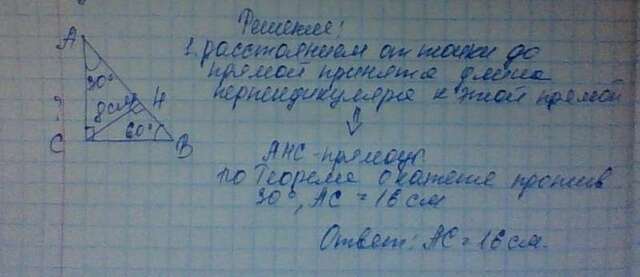 Решение:
1. расстоянием от точки до
прямой принята длина
перпендикуляра к этой прямой
⇓
AHC - прямоуг.
по Теореме о катете против
30°, AC = 16 см
Ответ: AC = 16 см.
A
30°
8см
H
?
60°
C
B